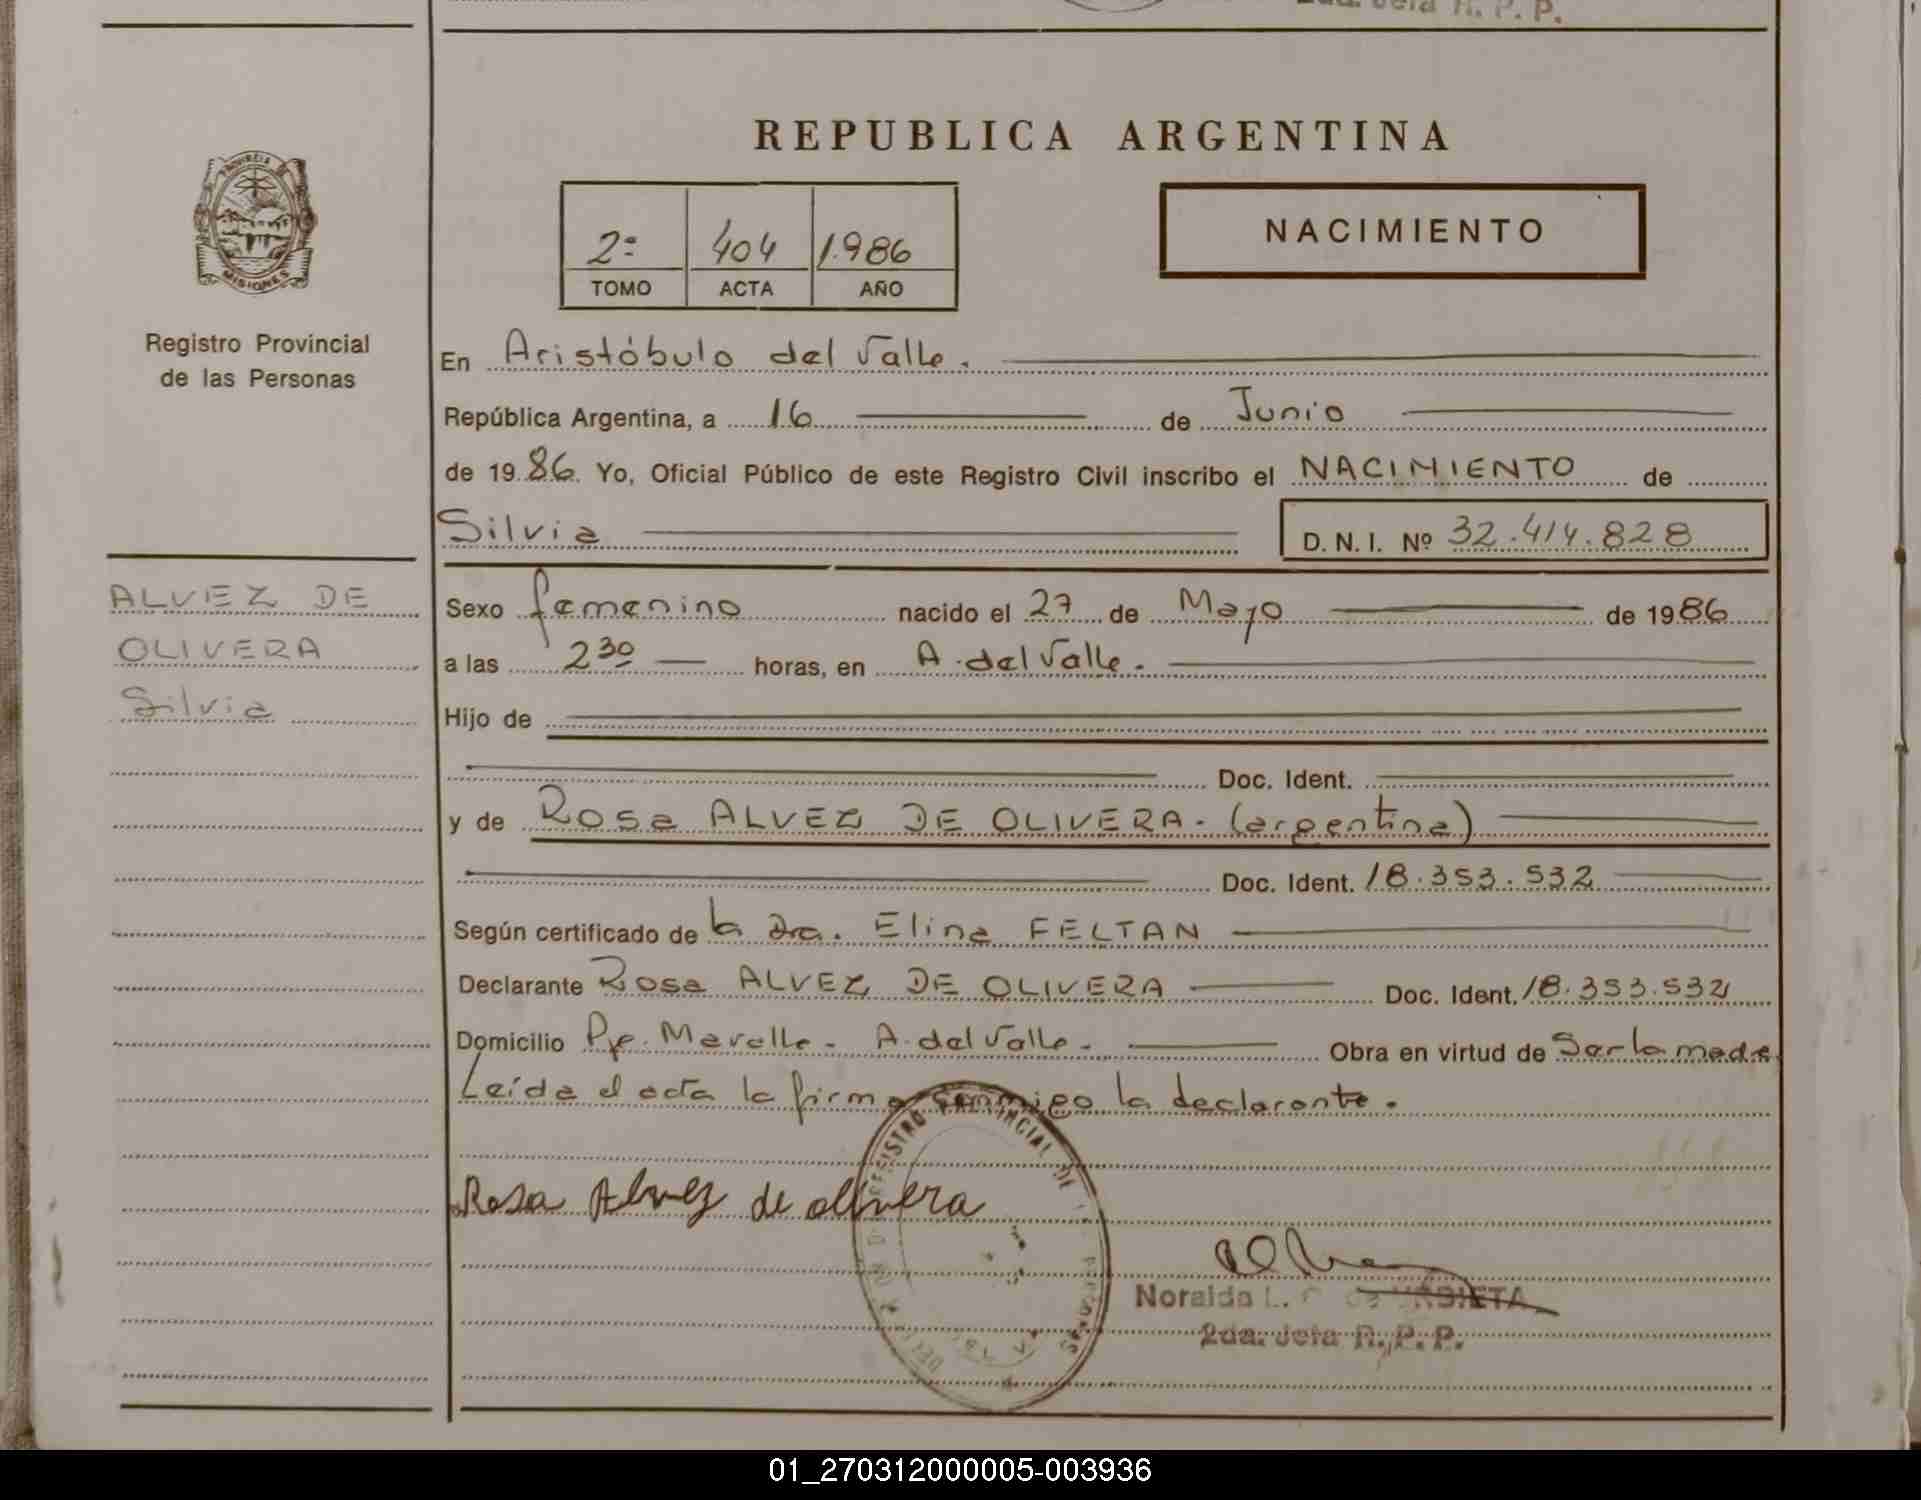 2da. Jefa R. P. P.
REPUBLICA ARGENTINA
PROVINCIA
MISIONES
2º 404 1.986
TOMO ACTA AÑO
NACIMIENTO
Registro Provincial
de las Personas
En Aristóbulo del Valle.
República Argentina, a 16 de Junio
de 1986. Yo, Oficial Público de este Registro Civil inscribo el NACIMIENTO de
Silvia D. N. I. Nº 32.414.828
ALVEZ DE
OLIVERA
Silvia
Sexo femenino nacido el 27 de Mayo de 1986
a las 2 30 horas, en A. del Valle.
Hijo de
Doc. Ident.
y de Rosa ALVEZ DE OLIVERA. (argentina)
Doc. Ident. 18.353.532
Según certificado de la Dra. Elina FELTAN
Declarante Rosa ALVEZ DE OLIVERA Doc. Ident. 18.353.532
Domicilio A. del Valle. Obra en virtud de Ser la madre
Leída el acta la firma conmigo la declarante.
REGISTRO PROVINCIAL DE
Rosa Alvez de olivera
Noralda L. de URDIETA
2da. Jefa R. P. P.
01_270312000005-003936